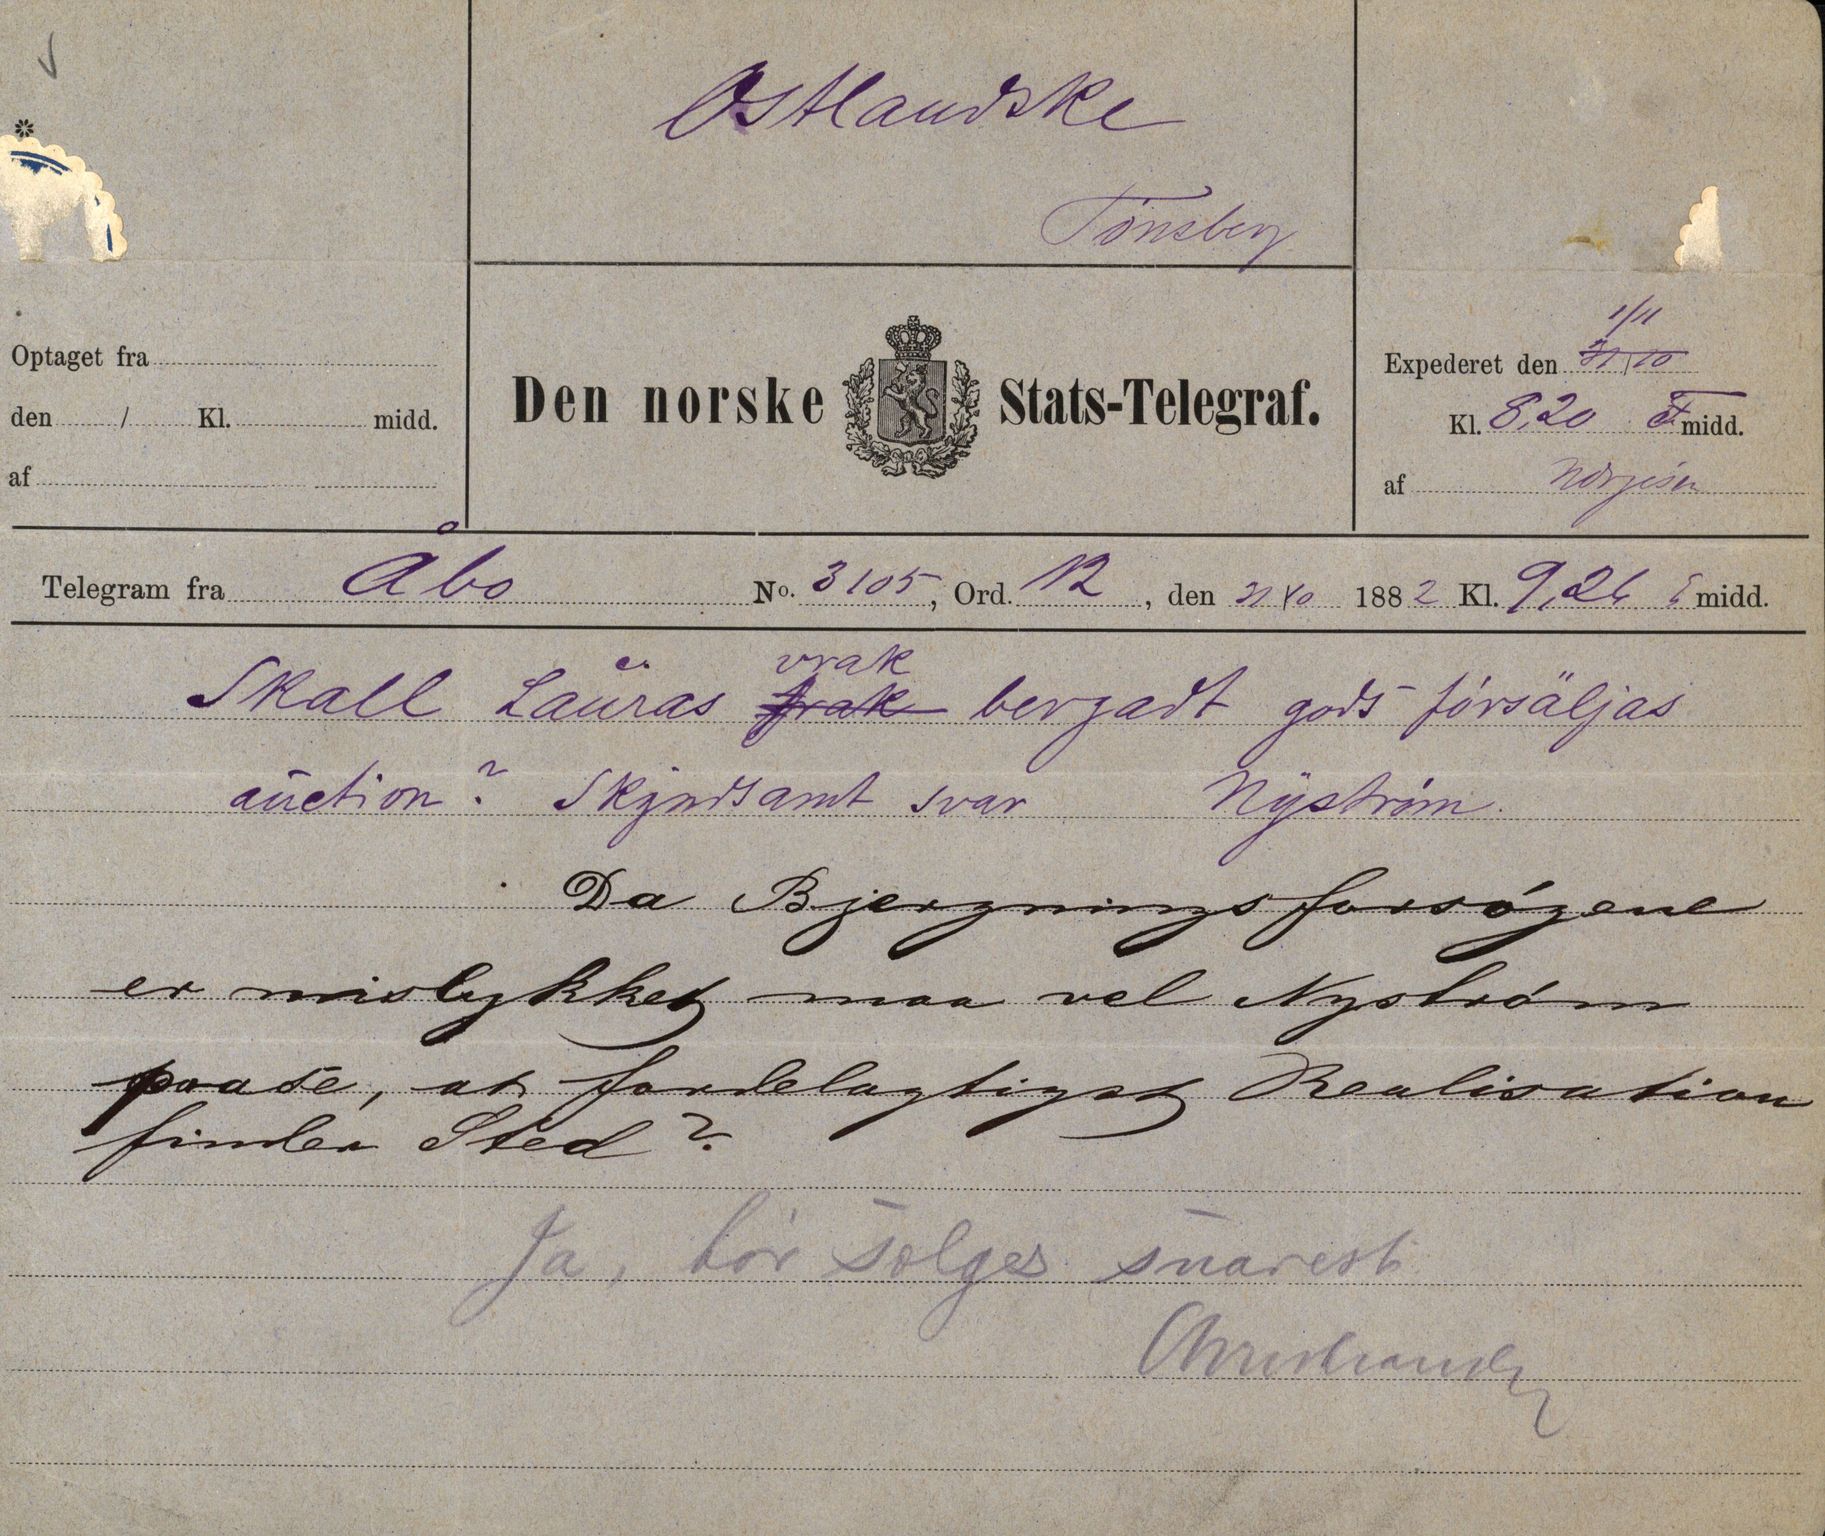 Ostlandske
Tønsberg
Optaget fra
den / Kl. midd.
af
Den norske Stats-Telegraf.
1/11
Expederet den 31/10
Kl. 8,20 F midd.
af
Telegram fra Åbo No. 3105, Ord. 12, den 31/10 1882 Kl. 9,26 E midd.
vrak
Skall Lauras frak bergadt gods försäljas
auction? Skyndsamt svar Nyström.
Da Bjergningsforsøgene
er mislykket maa vel Nystrøm
paase, at fordelagtigst Realisation
finder Sted?
Ja, bør sælges snarest